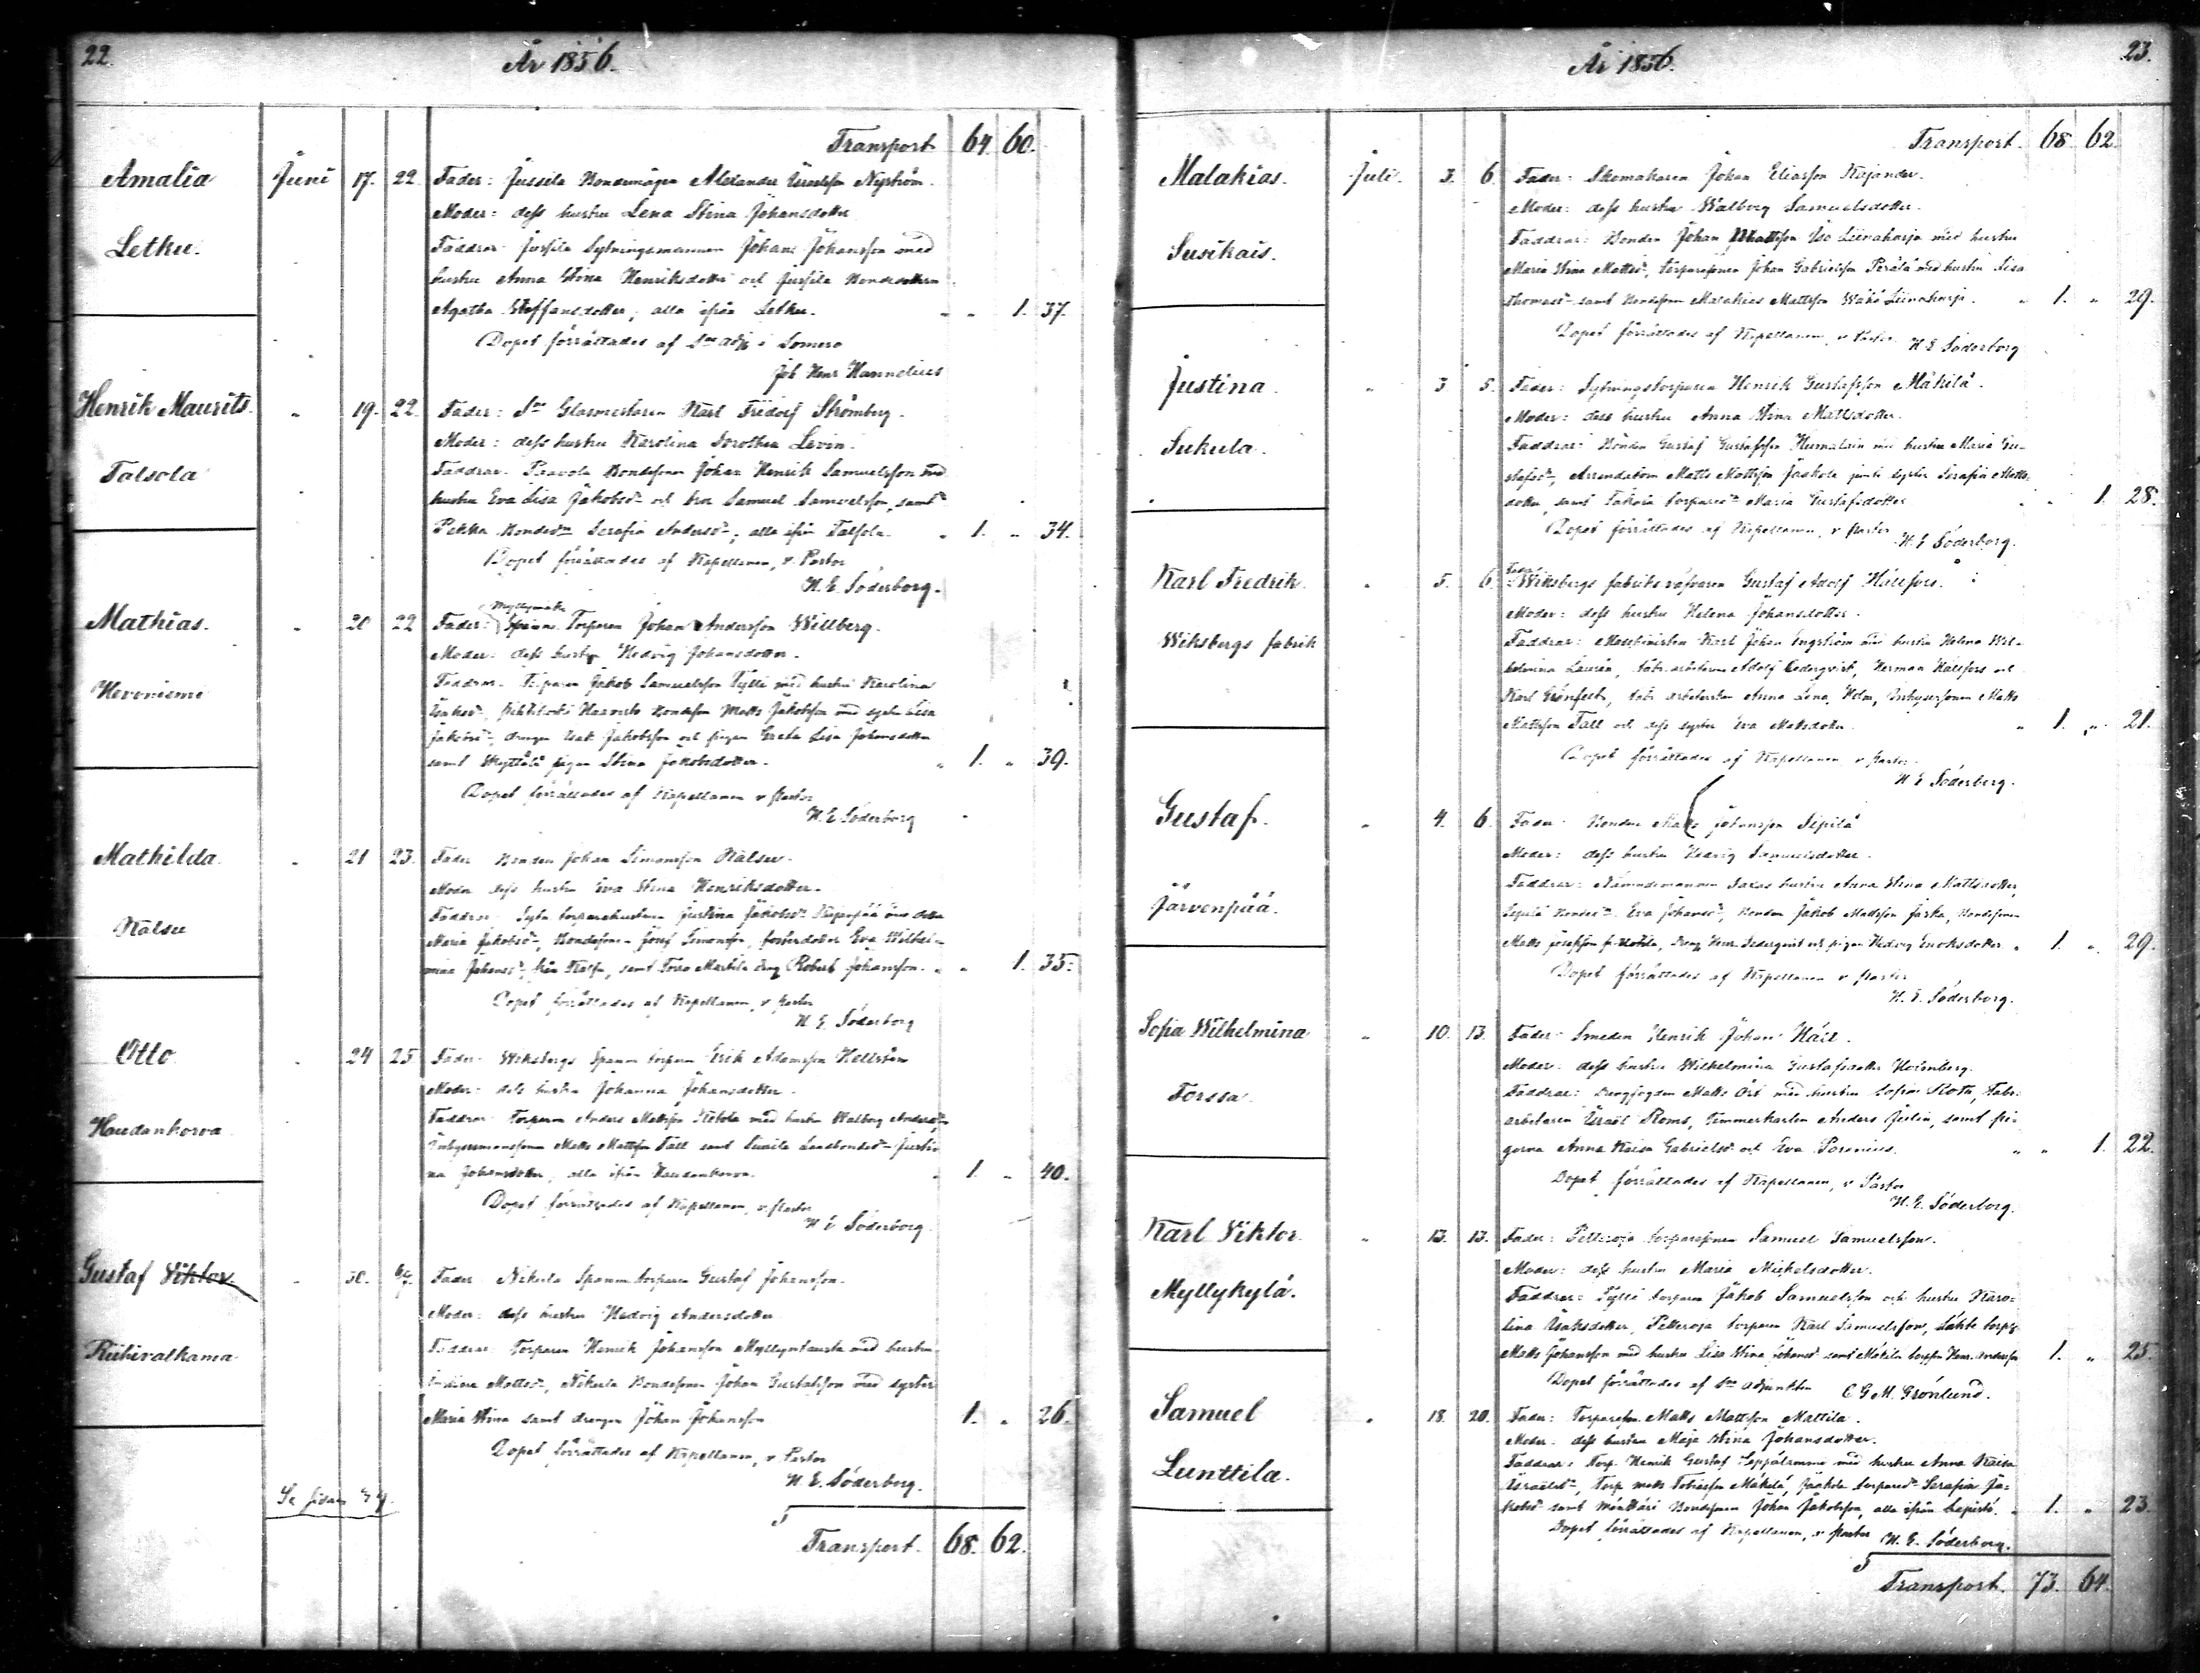 22.
År 1856.
Transport 64 60.
Amalia Juni 17. 22 Fader: Jussila Bondemågen Alexander Israelsson Nyström.
Moder: dess hustru Lena Stina Johansdotter
Letku. Faddrar: Jussila Sytningsmannen Johan Johansson med
hustru Anna Stina Henriksdotter och Jussila Bondedottern
Agatha Steffansdotter, alla ifrån Letku. " " 1. 37.
Dopet förrättades af Adj. i Somero
Joh Henr Hannelius
Henrik Maurits. " 19. 22. Fader: Glasmestaren Karl Fridolf Strömberg.
Moder: dess hustru Karolina Dorothea Levin.
Talsola Faddrar: Paavola Bondesonen Johan Henrik Samuelsson med
hustru Eva Lisa Jakobsd. och bror Samuel Samuelsson, samt
Pekka Serafia Andersd., alla ifrån Talsola. " 1. " 34.
Dopet förrättades af Kapellanen, v. Pastor
H. E. Söderborg.
Mathias. " 20 22 Fader: Torparen Johan Andersson Willberg.
Moder: dess hustru Hedvig Johansdotter.
Hevoniemi Faddrar: Torparen Jakob Samuelsson Tylli med hustru Karolina
Isaksd., Bondeson Matts Jakobsson med syster Lisa
Jakobsd., drengen Isak Jakobsson och pigan Greta Lisa Johansdotter
samt pigan Stina Jakobsdotter. " 1. " 39.
Dopet förrättades af Kapellanen v. Pastor
H. E. Söderborg
Mathilda. " 21 23. Fader Bonden Johan Simonsson Kälsu.
Moder dess hustru Eva Stina Henriksdotter.
Kälsu Faddrar: Justina Jakobsd.
Maria Jakobsd., Bondesonen Josef Simonsson, fosterdotter Eva Wilhel-
mina Johansd., från samt dreng Robert Johansson. " " 1. 35.
Dopet förrättades af Kapellanen, v. Pastor
H. E. Söderborg
Otto " 24 25 Fader: Wiksbergs torparen Erik Adamsson Hellstén
Moder: dess hustru Johanna Johansdotter.
Haudankorva Faddrar: Torparen Anders Mattsson med hustru Walborg Andersd.
Matts Mattsson Tall samt Justi-
na Johansdotter, alla ifrån Haudankorva. " 1. " 40.
Dopet förrättades af Kapellanen, v. Pastor
H. E. Söderborg.
Gustaf Viktor " 30. 6/7. Fader: Nikula torparen Gustaf Johansson.
Moder: dess hustru Hedvig Andersdotter
Riihivalkama Faddrar: Torparen Henrik Johansson med hustru
Mattsd., Nikula Bondesonen Johan Gustafsson med syster
Maria Stina samt drengen Johan Johansson 1. " 26.
Dopet förrättades af Kapellanen, v. Pastor
H. E. Söderborg.
Se sidan
Transport. 68. 62.
23.
År 1856.
Transport. 68 62.
Malakias. Juli. 3. 6. Fader: Skomakaren Johan Eliasson Kajander.
Moder: dess hustru Walborg Samuelsdotter.
Susikais. Faddrar: Bonden Johan Mattsson Iso Liinaharja med hustru
Maria Stina Mattsd., torparesonen Johan Gabrielsson Perälä med hustru Lisa
Thomasd. samt Bondesonen Malakias Mattsson Wähä Liinaharja. " 1. " 29.
Dopet förrättades af Kapellanen, v. Pastor
H E Söderborg
Justina. " 3 5. Fader: Sytningstorparen Henrik Gustafsson Mäkilä.
Moder: dess hustru Anna Stina Mattsdotter.
Sukula. Faddrar: Bonden Gustaf Gustafsson med hustru Maria Gu-
stafsd., Arrendatorn Matts Mattsson Jaakola jemte syster Serafia Matts-
dotter, samt Maria Gustafsdotter " " 1. 28.
Dopet förrättades af Kapellanen, v. Pastor
H. E. Söderborg.
Karl Fredrik. " 5. 6. Fader: Wiksbergs fabriks Gustaf Adolf Hällfors.
Moder: dess hustru Helena Johansdotter.
Wiksbergs fabrik Faddrar: Maschinisten Karl Johan Engström med hustru Helena Wil-
helmina Laurén, Adolf Cederqvist, Herman Hällfors och
Karl Grönfelt, Anna Lena Matts
Mattsson Tall och dess syster Eva Mattsdotter " 1. " 21.
Dopet förrättades af Kapellanen v. Pastor.
H. E Söderborg.
Gustaf. " 4. 6. Fader: Bonden Matts Johansson Sipilä
Moder: dess hustru Hedvig Samuelsdotter.
Järvenpää. Faddrar: Nämndemannen hustru Anna Stina Mattsdotter,
Sipilä Eva Johansd., Bonden Jakob Mattsson Jaska, Bondesonen
Matts Josefsson dreng Henr. och pigan Hedvig Enoksdotter " 1. " 29.
Dopet förrättades af Kapellanen v. Pastor
H. E. Söderborg.
Sofia Wilhelmina " 10. 13. Fader Smeden Henrik Johan Häll.
Moder: dess hustru Wilhelmina Gustafsdotter
Forssa Faddrar: Drengfogden Matts med hustru Sofia Roth, Fabr.
arbetaren Israel Roms, timmerkarlen Anders Julin, samt pi-
gorna Anna Kaisa Gabrielsd. och Eva " " 1. 22.
Dopet förrättades af Kapellanen, v. Pastor
H. E. Söderborg.
Karl Viktor. " 13. 13. Fader: torparesonen Samuel Samuelsson.
Moder: dess hustru Maria Mickelsdotter.
Myllykylä. Faddrar: Tylli torparen Jakob Samuelsson och hustru Karo-
lina Isaksdotter, torparen Karl Samuelsson,
Matts Johansson med hustru Lisa Stina Johansd. samt Mäkilä Henr. Andersson 1. " 25.
Dopet förrättades af adjunkten C G M. Grönlund.
Samuel " 18. 20. Fader: Torpareson Matts Mattsson Mattila.
Moder: dess hustru Maja Stina Johansdotter.
Lunttila. Faddrar: Torp. Henrik Gustaf med hustru Anna Kaisa
Israelsd., Torp. Matts Tobiasson Mäkelä, Jaakola Serafia Ja-
kobsd. samt Bondesonen Johan Jakobsson, alla ifrån " 1. " 23.
Dopet förrättades af Kapellanen, v. Pastor H. E. Söderborg.
Transport. 73. 64.